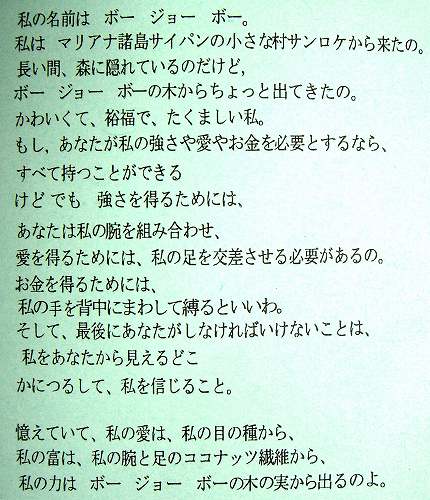 私の名前は　ボー　ジョー　ボー。
私は　マリアナ諸島サイパンの小さな村サンロケから来たの。
長い間、森に隠れているのだけど，
ボー　ジョー　ボーの木からちょっと出てきたの。
かわいくて、裕福で、たくましい私。
もし，あなたが私の強さや愛やお金を必要とするなら、
すべて持つことができる
けど でも　強さを得るためには、
あなたは私の腕を組み合わせ、
愛を得るためには、私の足を交差させる必要があるの。
お金を得るためには、
私の手を背中にまわして縛るといいわ。
そして、最後にあなたがしなければいけないことは、
私をあなたから見えるどこ
かにつるして、私を信じること。
憶えていて、私の愛は、私の目の種から、
私の富は、私の腕と足のココナッツ繊維から、
私の力は　ボー　ジョー　ボーの木の実から出るのよ。